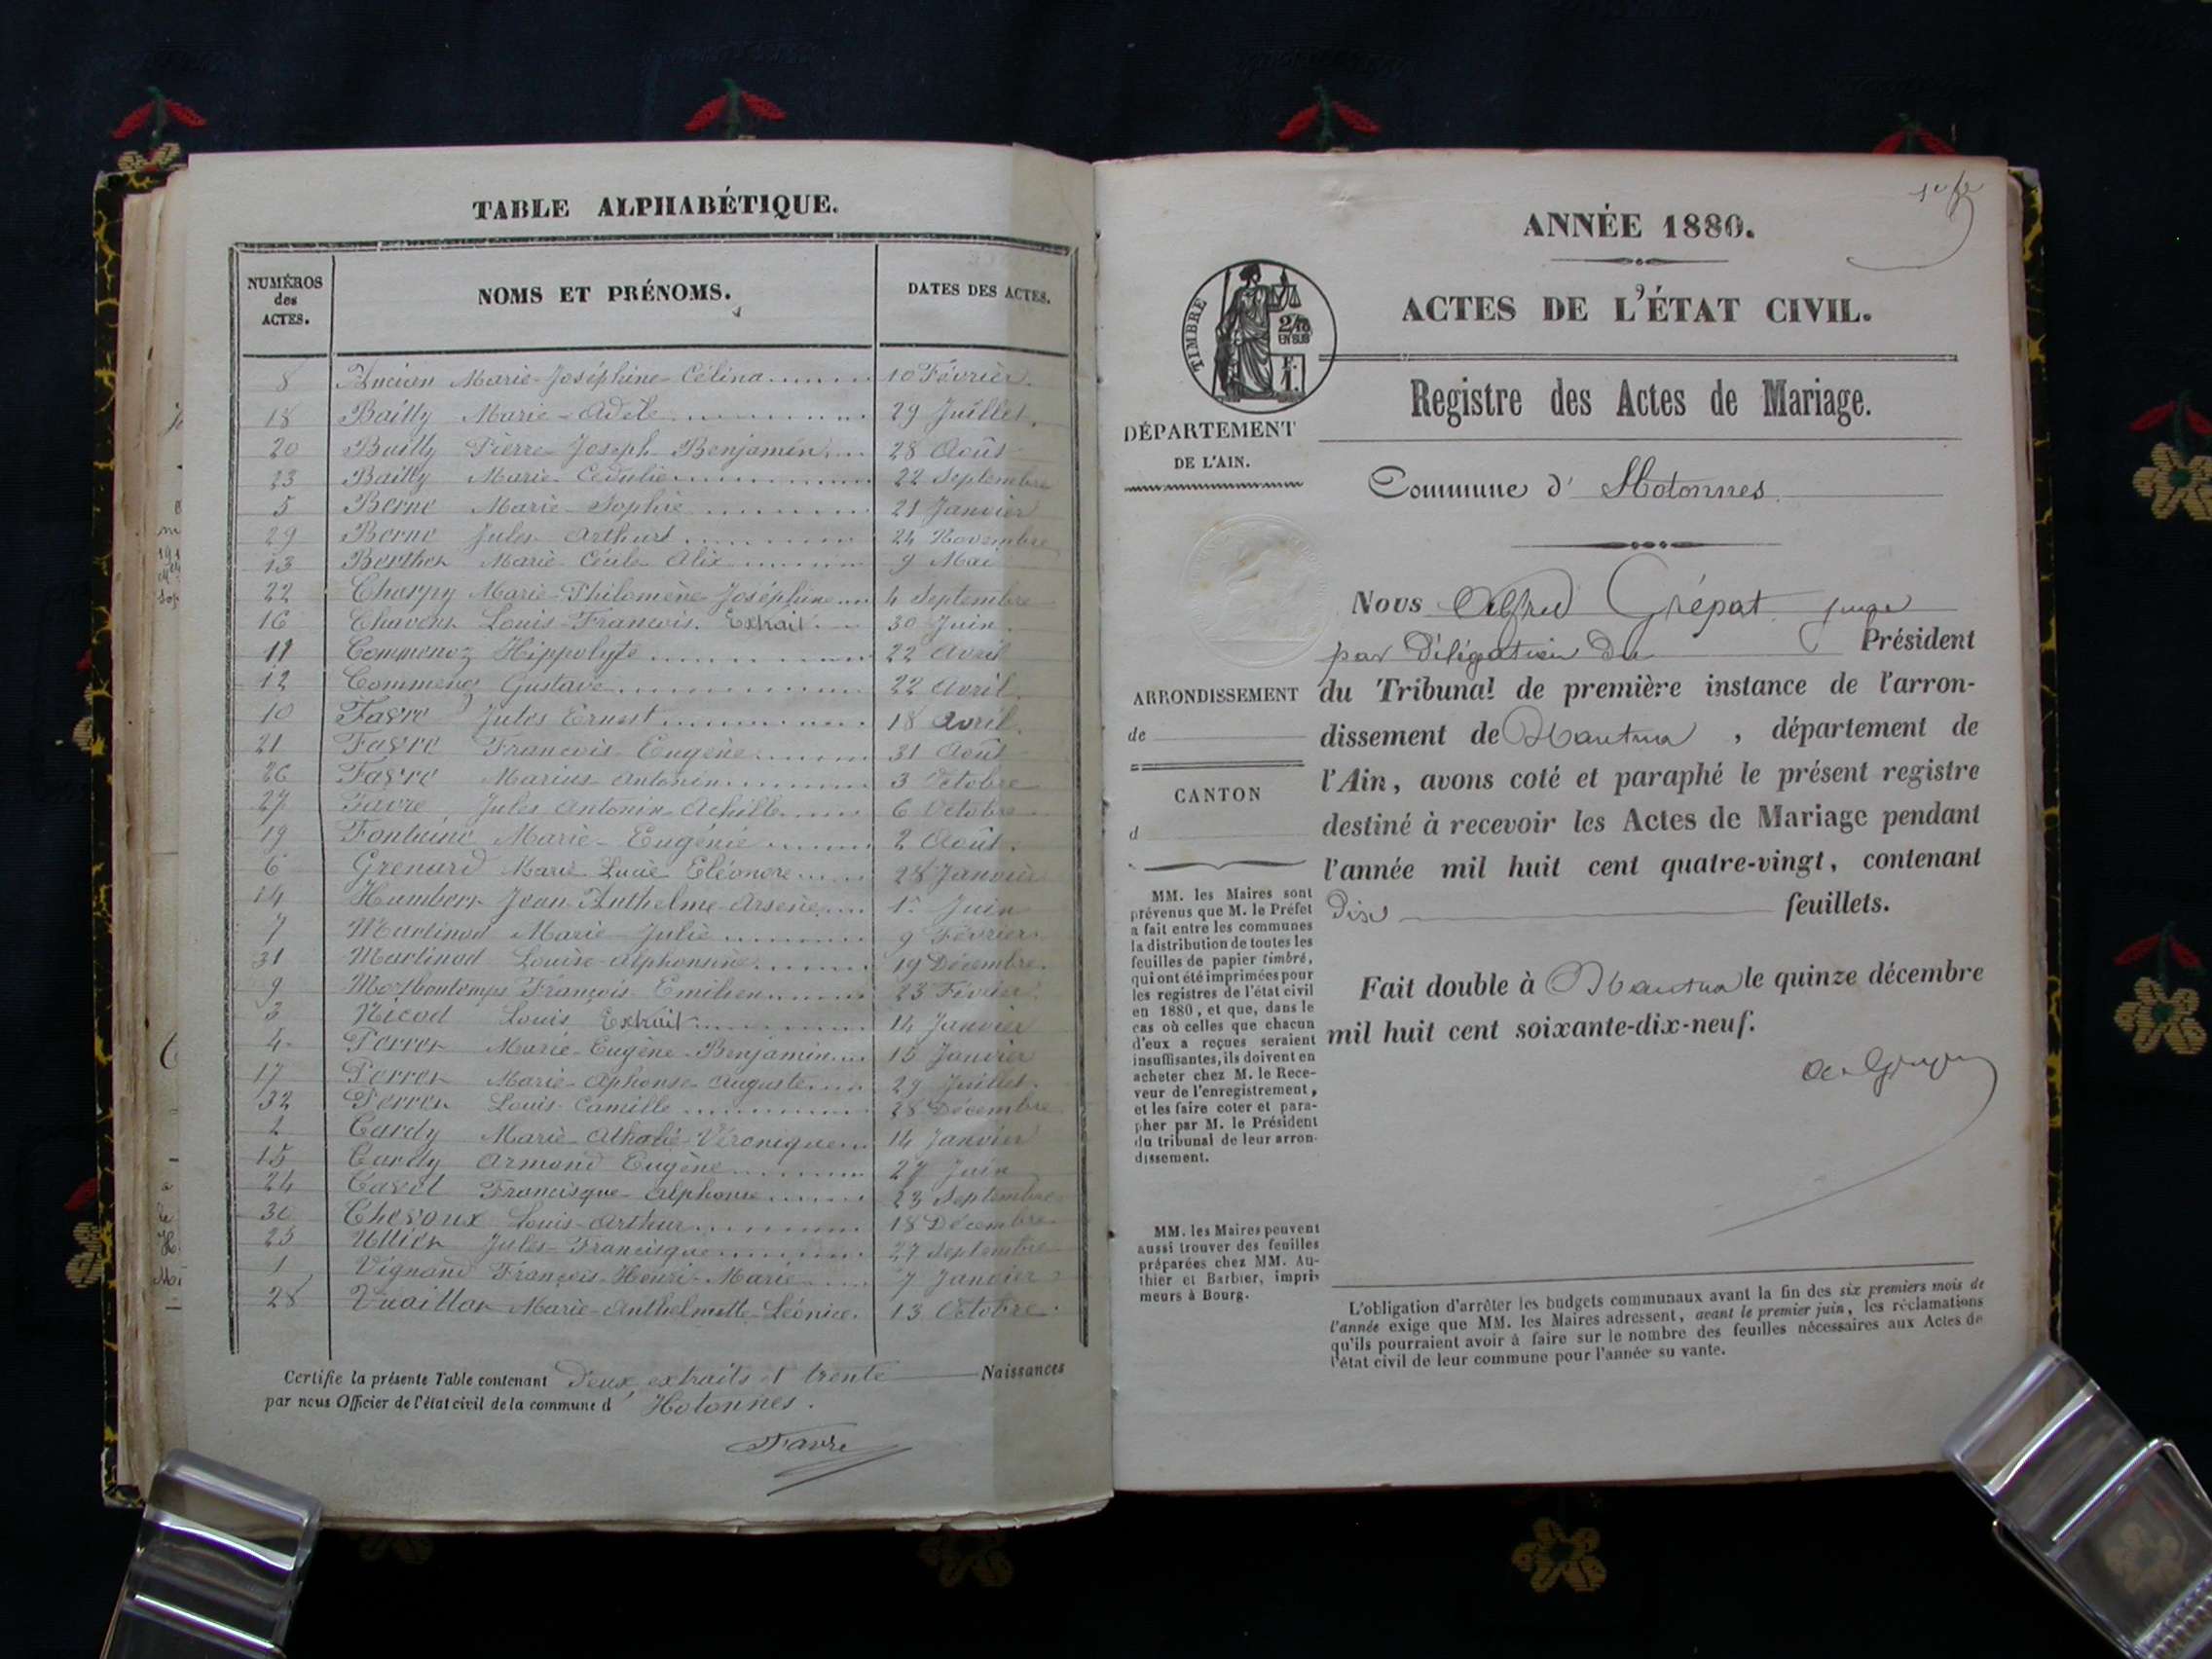 TABLE ALPHABÉTIQUE.
NUMÉROS
des
ACTES.
NOMS ET PRÉNOMS.
DATES DES ACTES.
8 Marie-Joséphine-Célina 10 Février.
18 Bailly Marie-Adèle 29 Juillet.
20 Bailly Pierre Joseph Benjamin 28 Août
23 Bailly Marie 22 Septembre
5 Berne Marie-Sophie 21 Janvier
29 Berne Jules Arthur 24 Novembre
13 Berthet Marie Cécile Alix 9 Mai
22 Charpy Marie-Philomène-Joséphine 4 Septembre
16 Louis-François. Extrait 30 Juin
11 Hippolyte 22 Avril
12 Gustave 22 Avril.
10 Favre Jules Ernest 18 Avril.
21 Favre François Eugène 31 Août
26 Favre Marius Antonin 3 Octobre
27 Favre Jules Antonin Achille 6 Octobre
19 Fontaine Marie-Eugénie 2 Août.
6 Grenard Marie Lucie Eléonore 28 Janvier
14 Humbert Jean Anthelme Arsène 1er Juin
7 Martinod Marie-Julie 9 Février
31 Martinod Louise-Alphonsine 19 Décembre.
9 François Emilien 23 Février.
3 Nicod Louis Extrait 14 Janvier
4 Perret Marie-Eugène-Benjamin 15 Janvier
17 Perret Marie-Alphonse Auguste 29 Juillet.
32 Perret Louis Camille 28 Décembre
2 Tardy Marie-Athalie-Véronique 14 Janvier
15 Tardy Armand Eugène 27 Juin
24 Francisque Alphonse 23 Septembre
30 Louis-Arthur 18 Décembre
25 Jules-Francisque 27 Septembre
1 Vignand François-Henri-Marie 7 Janvier
28 Marie-Anthelmette Léonice. 13 Octobre.
Certifie la présente Table contenant Deux extraits et trente Naissances
par nous Officier de l'état civil de la commune d' Hotonnes.
Favre
ANNÉE 1880.
ACTES DE L'ÉTAT CIVIL.
TIMBRE
2/10
EN SUS
F.
1.
Registre des Actes de Mariage.
DÉPARTEMENT
DE L'AIN.
Commune d' Hotonnes.
Nous Alfred Grépat juge
par délégation du Président
du Tribunal de première instance de l'arron-
dissement de Nantua, département de
l'Ain, avons coté et paraphé le présent registre
destiné à recevoir les Actes de Mariage pendant
l'année mil huit cent quatre-vingt, contenant
Dix feuillets.
Fait double à Nantua le quinze décembre
mil huit cent soixante-dix-neuf.
ARRONDISSEMENT
de
CANTON
d
MM. les Maires sont
prévenus que M. le Préfet
a fait entre les communes
la distribution de toutes les
feuilles de papier timbré,
qui ont été imprimées pour
les registres de l'état civil
en 1880, et que, dans le
cas où celles que chacun
d'eux a reçues seraient
insuffisantes, ils doivent en
acheter chez M. le Rece-
veur de l'enregistrement,
et les faire coter et para-
pher par M. le Président
du tribunal de leur arron-
dissement.
MM. les Maires peuvent
aussi trouver des feuilles
préparées chez MM. Au-
thier et Barbier, impri-
meurs à Bourg.
L'obligation d'arrêter les budgets communaux avant la fin des six premiers mois de
l'année exige que MM. les Maires adressent, avant le premier juin, les réclamations
qu'ils pourraient avoir à faire sur le nombre des feuilles nécessaires aux Actes de
l'état civil de leur commune pour l'année su vante.